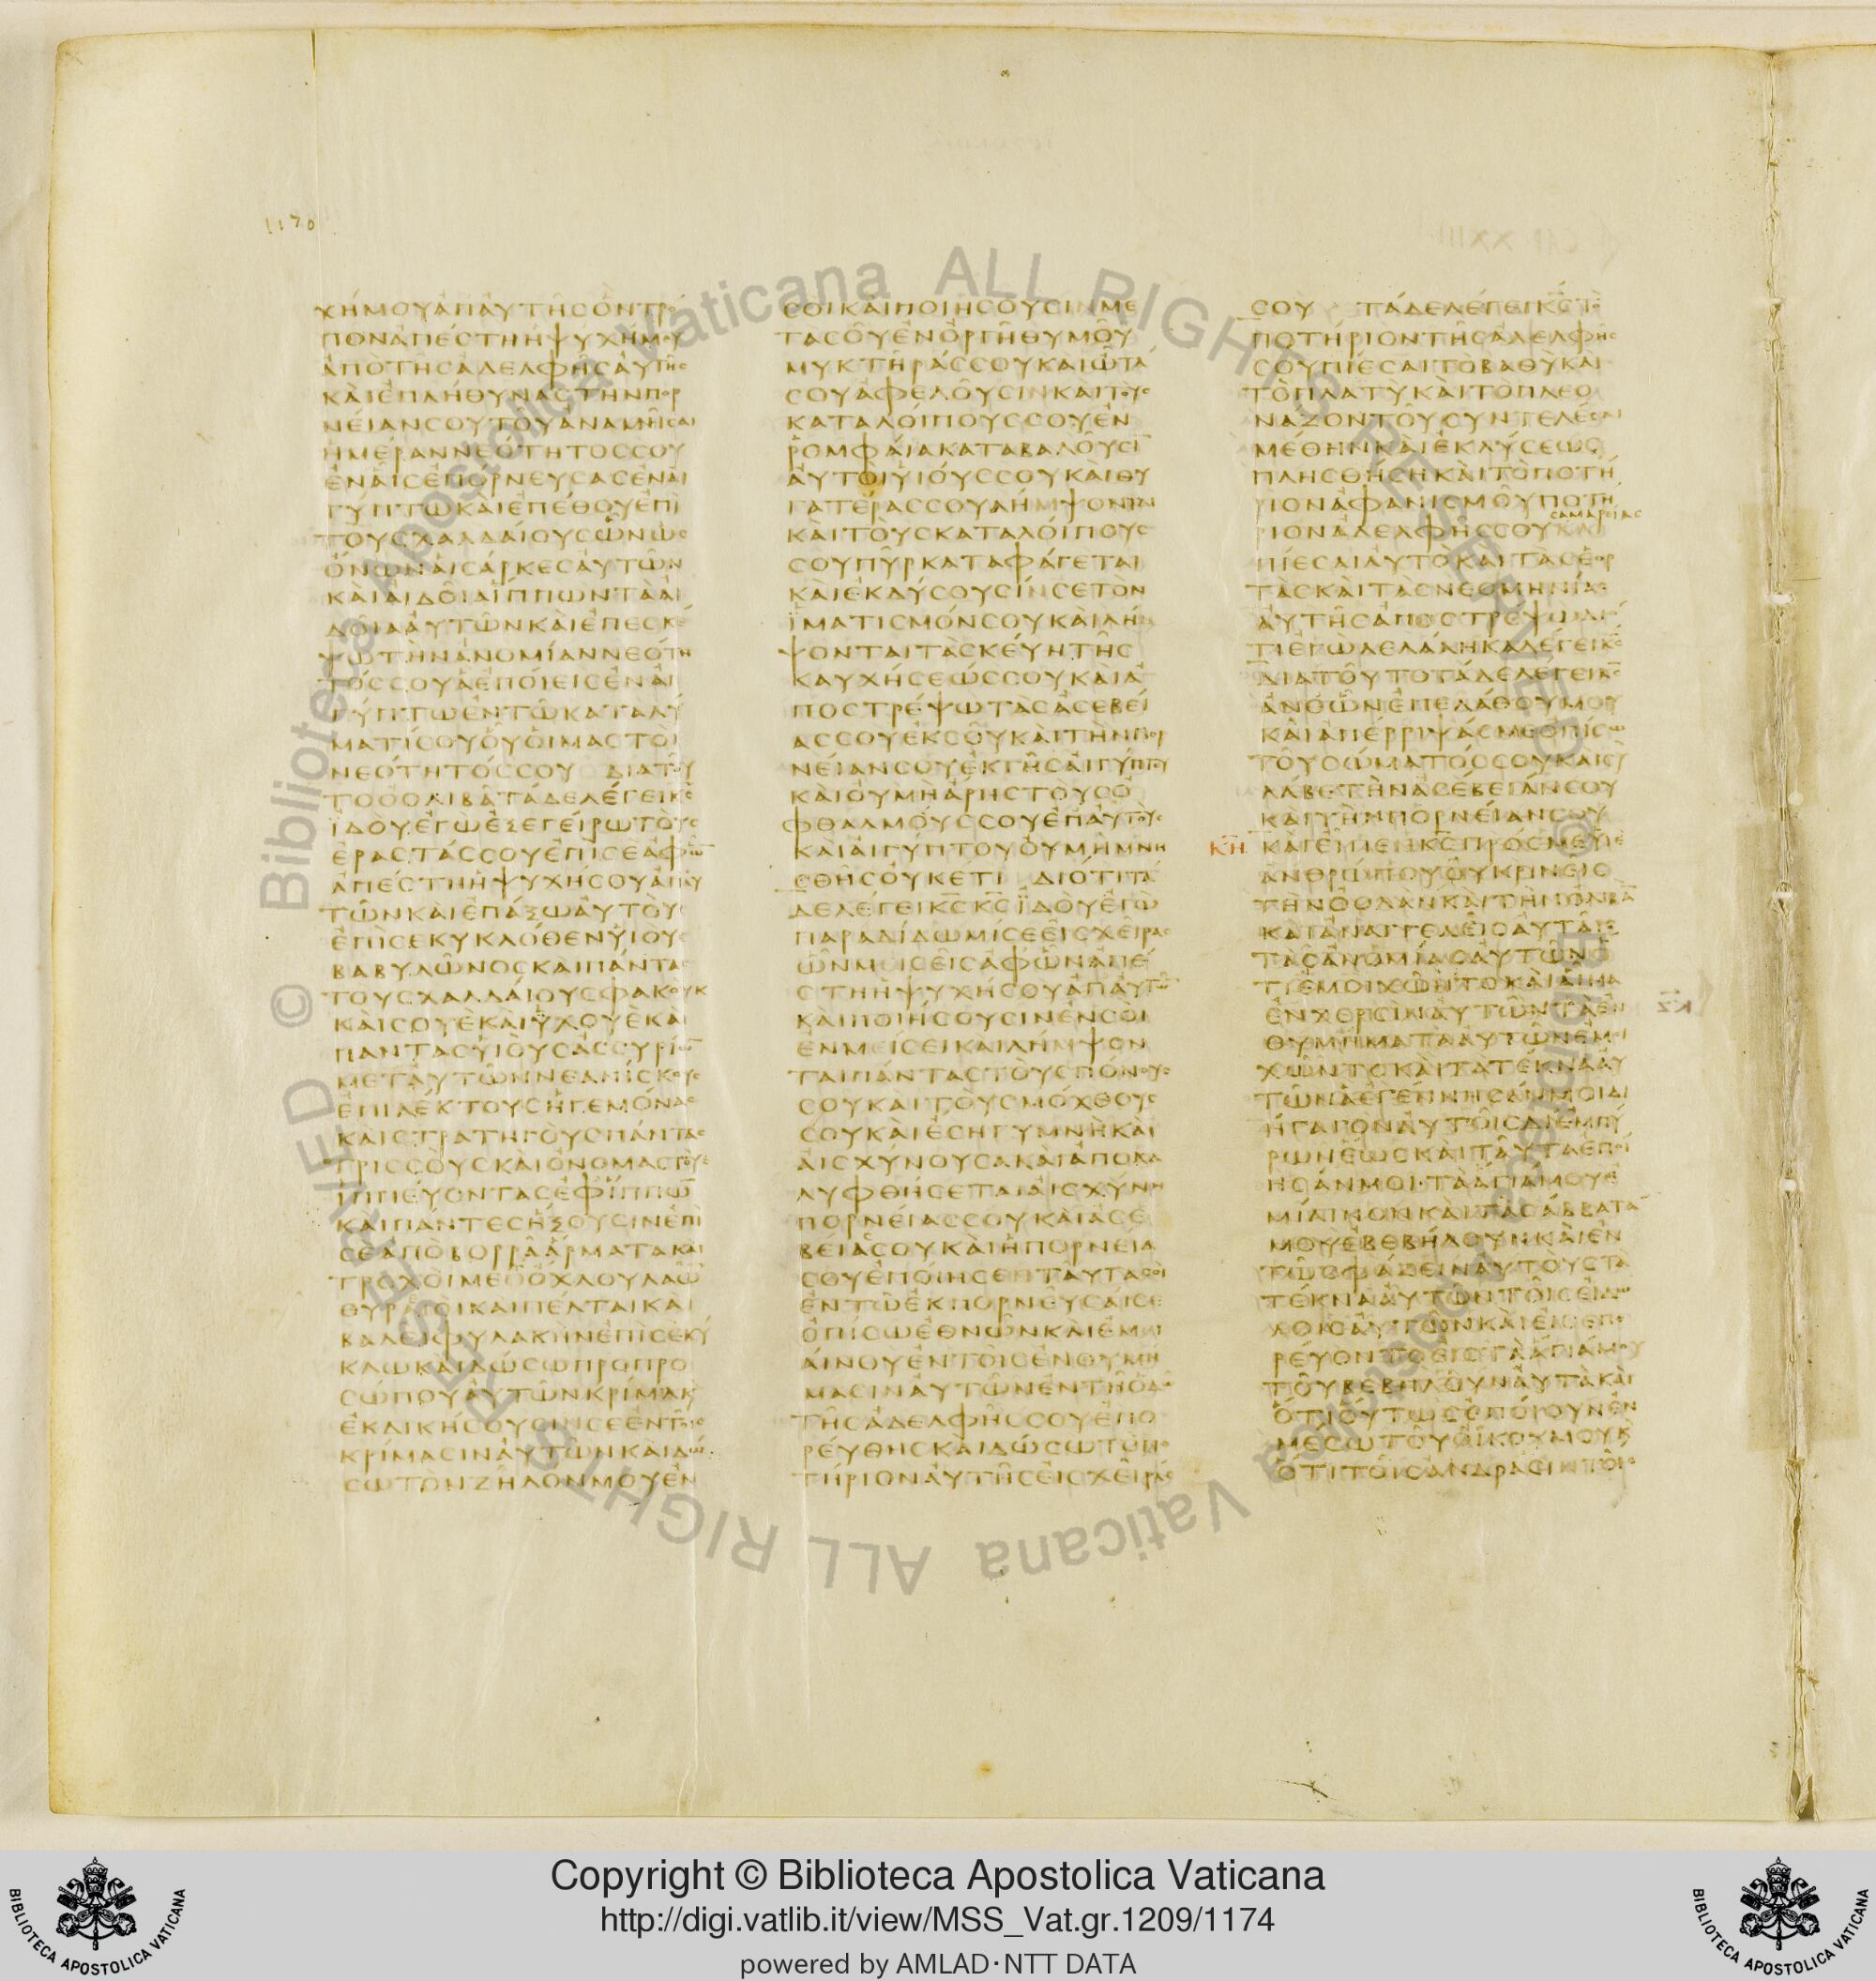 1170
ΧΗΜΟΥΑΠΑΥΤΗϹΟΝΤΡΟ
ΠΟΝΑΠΕϹΤΗΗΨΥΧΗΜΟΥ
ΑΠΟΤΗϹΑΔΕΛΦΗϹΑΥΤΗϹ
ΚΑΙΕΠΛΗΘΥΝΑϹΤΗΝΠΟΡ
ΝΕΙΑΝϹΟΥΤΟΥΑΝΑΜΝΗϹΑΙ
ΗΜΕΡΑΝΝΕΟΤΗΤΟϹϹΟΥ
ΕΝΑΙϹΕΠΟΡΝΕΥϹΑϹΕΝΑΙ
ΓΥΠΤΩΚΑΙΕΠΕΘΟΥΕΠΙ
ΤΟΥϹΧΑΛΔΑΙΟΥϹΩΝΩϹ
ΟΝΩΝΑΙϹΑΡΚΕϹΑΥΤΩΝ
ΚΑΙΑΙΔΟΙΑΙΠΠΩΝΤΑΑΙ
ΔΟΙΑΑΥΤΩΝΚΑΙΕΠΕϹΚΕ
ΨΩΤΗΝΑΝΟΜΙΑΝΝΕΟΤΗ
ΤΟϹϹΟΥΑΕΠΟΙΕΙϹΕΝΑΙ
ΓΥΠΤΩΕΝΤΩΚΑΤΑΛΥ
ΜΑΤΙϹΟΥΟΥΟΙΜΑϹΤΟΙ
ΝΕΟΤΗΤΟϹϹΟΥ ΔΙΑΤΟΥ
ΤΟΟΟΛΙΒΑΤΑΔΕΛΕΓΕΙΚϹ
ΙΔΟΥΕΓΩΕΞΕΓΕΙΡΩΤΟΥϹ
ΕΡΑϹΤΑϹϹΟΥΕΠΙϹΕΑΦΩ̅
ΑΠΕϹΤΗΗΨΥΧΗϹΟΥΑΠΑΥ
ΤΩΝΚΑΙΕΠΑΞΩΑΥΤΟΥϹ
ΕΠΙϹΕΚΥΚΛΟΘΕΝΥΙΟΥϹ
ΒΑΒΥΛΩΝΟϹΚΑΙΠΑΝΤΑϹ
ΤΟΥϹΧΑΛΔΑΙΟΥϹΦΑΚΟΥΚ
ΚΑΙϹΟΥΕΚΑΙΥΧΟΥΕΚΑΙ
ΠΑΝΤΑϹΥΙΟΥϹΑϹϹΥΡΙΩ̅
ΜΕΤΑΥΤΩΝΝΕΑΝΙϹΚΟΥϹ
ΕΠΙΛΕΚΤΟΥϹΗΓΕΜΟΝΑϹ
ΚΑΙϹΤΡΑΤΗΓΟΥϹΠΑΝΤΑϹ
ΤΡΙϹϹΟΥϹΚΑΙΟΝΟΜΑϹΤΟΥϹ
ΙΠΠΕΥΟΝΤΑϹΕΦΙΠΠΩ̅
ΚΑΙΠΑΝΤΕϹΗΞΟΥϹΙΝΕΠΙ
ϹΕΑΠΟΒΟΡΡΑΑΡΜΑΤΑΚΑΙ
ΤΡΟΧΟΙΜΕΤΟΧΛΟΥΛΑΩ̅
ΘΥΡΕΟΙΚΑΙΠΕΛΤΑΙΚΑΙ
ΒΑΛΕΙΦΥΛΑΚΗΝΕΠΙϹΕΚΥ
ΚΛΩΚΑΙΔΩϹΩΠΡΟΠΡΟ
ϹΩΠΟΥΑΥΤΩΝΚΡΙΜΑΚ
ΕΚΔΙΚΗϹΟΥϹΙΝϹΕΕΝΤΟΙϹ
ΚΡΙΜΑϹΙΝΑΥΤΩΝΚΑΙΔΩ
ϹΩΤΟΝΖΗΛΟΝΜΟΥΕΝ
ϹΟΙΚΑΙΠΟΙΗϹΟΥϹΙΝΜΕ
ΤΑϹΟΥΕΝΟΡΓΗΘΥΜΟΥ
ΜΥΚΤΗΡΑϹϹΟΥΚΑΙΩΤΑ
ϹΟΥΑΦΕΛΟΥϹΙΝΚΑΙΤΟΥϹ
ΚΑΤΑΛΟΙΠΟΥϹϹΟΥΕΝ
ΡΟΜΦΑΙΑΚΑΤΑΒΑΛΟΥϹΙ̅
ΑΥΤΟΙΥΙΟΥϹϹΟΥΚΑΙΘΥ
ΓΑΤΕΡΑϹϹΟΥΛΗΜΨΟΝΤΑΙ
ΚΑΙΤΟΥϹΚΑΤΑΛΟΙΠΟΥϹ
ϹΟΥΠΥΡΚΑΤΑΦΑΓΕΤΑΙ
ΚΑΙΕΚΔΥϹΟΥϹΙΝϹΕΤΟΝ
ΙΜΑΤΙϹΜΟΝϹΟΥΚΑΙΛΗΜ
ΨΟΝΤΑΙΤΑϹΚΕΥΗΤΗϹ
ΚΑΥΧΗϹΕΩϹϹΟΥΚΑΙΑ
ΠΟϹΤΡΕΨΩΤΑϹΑϹΕΒΕΙ
ΑϹϹΟΥΕΚϹΟΥΚΑΙΤΗΝΠΟΡ
ΝΕΙΑΝϹΟΥΕΚΓΗϹΑΙΓΥΠΤΟΥ
ΚΑΙΟΥΜΗΑΡΗϹΤΟΥϹΟ
ΦΘΑΛΜΟΥϹϹΟΥΕΠΑΥΤΟΥϹ
ΚΑΙΑΙΓΥΠΤΟΥΟΥΜΗΜΝΗ
ϹΘΗϹΟΥΚΕΤΙ ΔΙΟΤΙΤΑ
ΔΕΛΕΓΕΙΚϹΚϹΙΔΟΥΕΓΩ
ΠΑΡΑΔΙΔΩΜΙϹΕΕΙϹΧΕΙΡΑϹ
ΩΝΜΕΙϹΕΙϹΑΦΩΝΑΠΕ
ϹΤΗΗΨΥΧΗϹΟΥΑΠΑΥΤΩ̅
ΚΑΙΠΟΙΗϹΟΥϹΙΝΕΝϹΟΙ
ΕΝΜΕΙϹΕΙΚΑΙΛΗΜΨΟΝ
ΤΑΙΠΑΝΤΑϹΤΟΥϹΠΟΝΟΥϹ
ϹΟΥΚΑΙΤΟΥϹΜΟΧΘΟΥϹ
ϹΟΥΚΑΙΕϹΗΓΥΜΝΗΚΑΙ
ΑΙϹΧΥΝΟΥϹΑΚΑΙΑΠΟΚΑ
ΛΥΦΘΗϹΕΤΑΙΑΙϹΧΥΝΗ
ΠΟΡΝΕΙΑϹϹΟΥΚΑΙΑϹΕ
ΒΕΙΑϹϹΟΥΚΑΙΗΠΟΡΝΕΙΑ
ϹΟΥΕΠΟΙΗϹΕΝΤΑΥΤΑϹΟΙ
ΕΝΤΩΕΚΠΟΡΝΕΥϹΑΙϹΕ
ΟΠΙϹΩΕΘΝΩΝΚΑΙΕΜΙ
ΑΙΝΟΥΕΝΤΟΙϹΕΝΘΥΜΗ
ΜΑϹΙΝΑΥΤΩΝΕΝΤΗΟΔΩ
ΤΗϹΑΔΕΛΦΗϹϹΟΥΕΠΟ
ΡΕΥΘΗϹΚΑΙΔΩϹΩΤΟΠΟ
ΤΗΡΙΟΝΑΥΤΗϹΕΙϹΧΕΙΡΑϹ
ϹΟΥ ΤΑΔΕΛΕΓΕΙΚϹΤΟ
ΠΟΤΗΡΙΟΝΤΗϹΑΔΕΛΦΗϹ
ϹΟΥΠΙΕϹΑΙΤΟΒΑΘΥΚΑΙ
ΤΟΠΛΑΤΥΚΑΙΤΟΠΛΕΟ
ΝΑΖΟΝΤΟΥϹΥΝΤΕΛΕϹΑΙ
ΜΕΘΗΝΚΑΙΕΚΛΥϹΕΩϹ
ΠΛΗϹΘΗϹΗΚΑΙΤΟΠΟΤΗ
ΡΙΟΝΑΦΑΝΙϹΜΟΥΠΟΤΗ
ϹΑΜΑΡΕΙΑϹ
ΡΙΟΝΑΔΕΛΦΗϹϹΟΥΚΑΙ
ΠΙΕϹΑΙΑΥΤΟΚΑΙΤΑϹΕΟΡ
ΤΑϹΚΑΙΤΑϹΝΕΟΜΗΝΙΑϹ
ΑΥΤΗϹΑΠΟϹΤΡΕΨΩΔΙΟ
ΤΙΕΓΩΛΕΛΑΛΗΚΑΛΕΓΕΙΚϹ
ΔΙΑΤΟΥΤΟΤΑΔΕΛΕΓΕΙΚϹ
ΑΝΘΩΝΕΠΕΛΑΘΟΥΜΟΥ
ΚΑΙΑΠΕΡΡΙΨΑϹΜΕΟΠΙϹΩ
ΤΟΥϹΩΜΑΤΟϹϹΟΥΚΑΙϹΥ
ΛΑΒΕΤΗΝΑϹΕΒΕΙΑΝϹΟΥ
ΚΑΙΤΗΝΠΟΡΝΕΙΑΝϹΟΥ
ΚΗ ΚΑΙΕΙΠΕΝΚϹΠΡΟϹΜΕΥΙΕ
ΑΝΘΡΩΠΟΥΟΥΚΡΙΝΕΙϹ
ΤΗΝΟΟΛΑΝΚΑΙΤΗΝΟΛΙΒΑ̅
ΚΑΙΑΠΑΓΓΕΛΕΙϹΑΥΤΑΙϹ
ΤΑϹΑΝΟΜΙΑϹΑΥΤΩΝΟ
ΤΙΕΜΟΙΧΩΝΤΟΚΑΙΑΙΜΑ
ΚΖ
ΕΝΧΕΡϹΙΝΑΥΤΩΝΤΑΕΝ
ΘΥΜΗΜΑΤΑΑΥΤΩΝΕΜΟΙ
ΧΩΝΤΟΚΑΙΤΑΤΕΚΝΑΑΥ
ΤΩΝΑΕΓΕΝΝΗϹΑΝΜΟΙΔΙ
ΗΓΑΓΟΝΑΥΤΟΙϹΔΙΕΜΠΥ
ΡΩΝΕΩϹΚΑΙΤΑΥΤΑΕΠΟΙ
ΗϹΑΝΜΟΙ·ΤΑΑΓΙΑΜΟΥΕ
ΜΙΑΙΝΟΝΚΑΙΤΑϹΑΒΒΑΤΑ
ΜΟΥΕΒΕΒΗΛΟΥΝΚΑΙΕΝ
ΤΩϹΦΑΖΕΙΝΑΥΤΟΥϹΤΑ
ΤΕΚΝΑΑΥΤΩΝΤΟΙϹΕΙΔΩ
ΛΟΙϹΑΥΤΩΝΚΑΙΕΙϹΕΠΟ
ΡΕΥΟΝΤΟΕΙϹΤΑΑΓΙΑΜΟΥ
ΤΟΥΒΕΒΗΛΟΥΝΑΥΤΑΚΑΙ
ΟΤΙΟΥΤΩϹΕΠΟΙΟΥΝΕΝ
ΜΕϹΩΤΟΥΟΙΚΟΥΜΟΥΚ
ΟΤΙΤΟΙϹΑΝΔΡΑϹΙΝΤΟΙϹ
© Biblioteca Apostolica Vaticana ALL RIGHTS RESERVED
© Biblioteca Apostolica Vaticana ALL RIGHTS RESERVED
BIBLIOTECA APOSTOLICA VATICANA
Copyright © Biblioteca Apostolica Vaticana
http://digi.vatlib.it/view/MSS_Vat.gr.1209/1174
powered by AMLAD·NTT DATA
BIBLIOTECA APOSTOLICA VATICANA